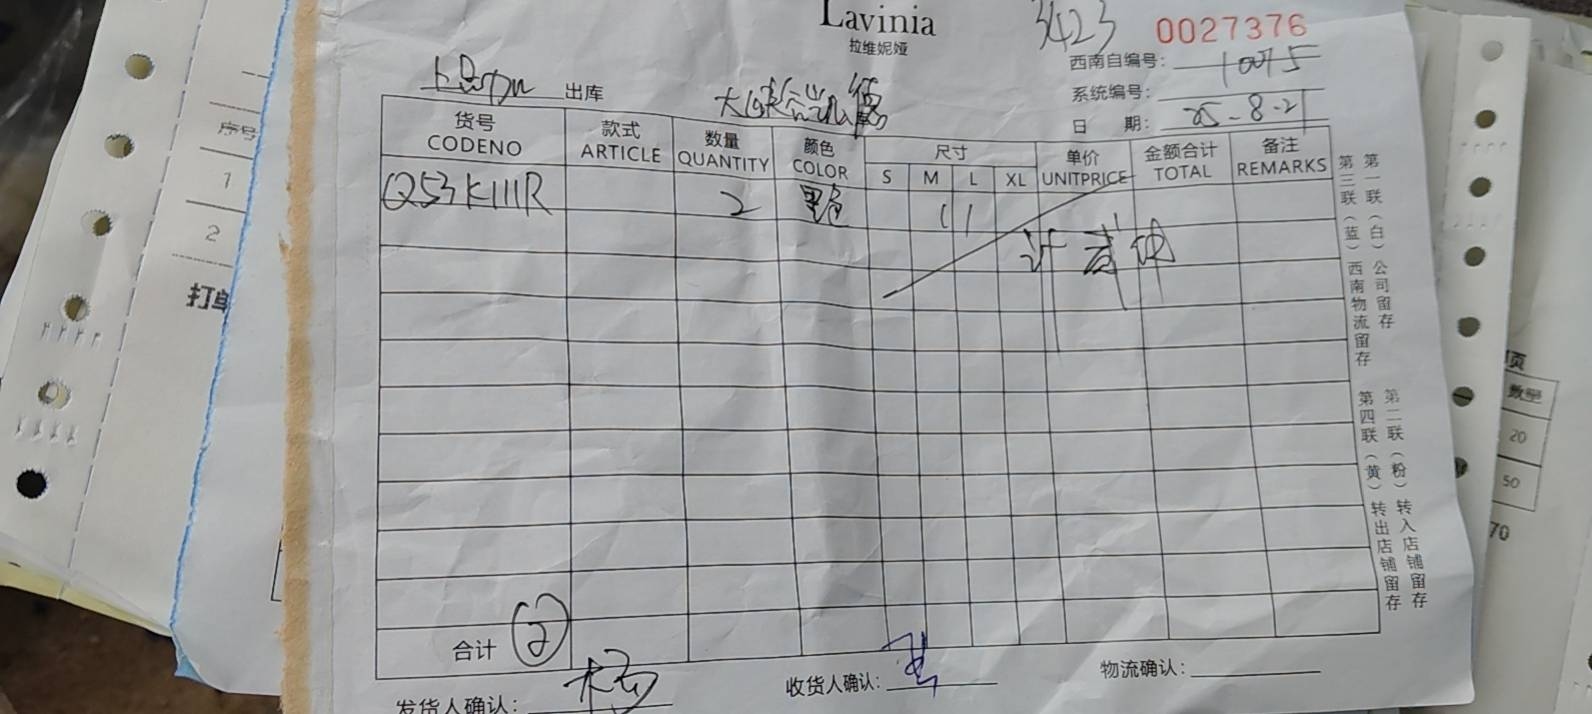 Lavinia
拉维妮娅
3423
0027376
西南自编号: 10075
系统编号:
日 期: 25-8-21
出库
货号 款式 数量 颜色 尺寸 单价 金额合计 备注
CODENO ARTICLE QUANTITY COLOR S M L XL UNITPRICE TOTAL REMARKS
Q53K111R 2 黑色 1 1
许
合计 2
发货人确认: 杨
收货人确认:
物流确认:
第一联(白)公司留存
第三联(蓝)西南物流留存
第二联(粉)转入店铺留存
第四联(黄)转出店铺留存
序号
1
2
打单
页
数量
20
50
70